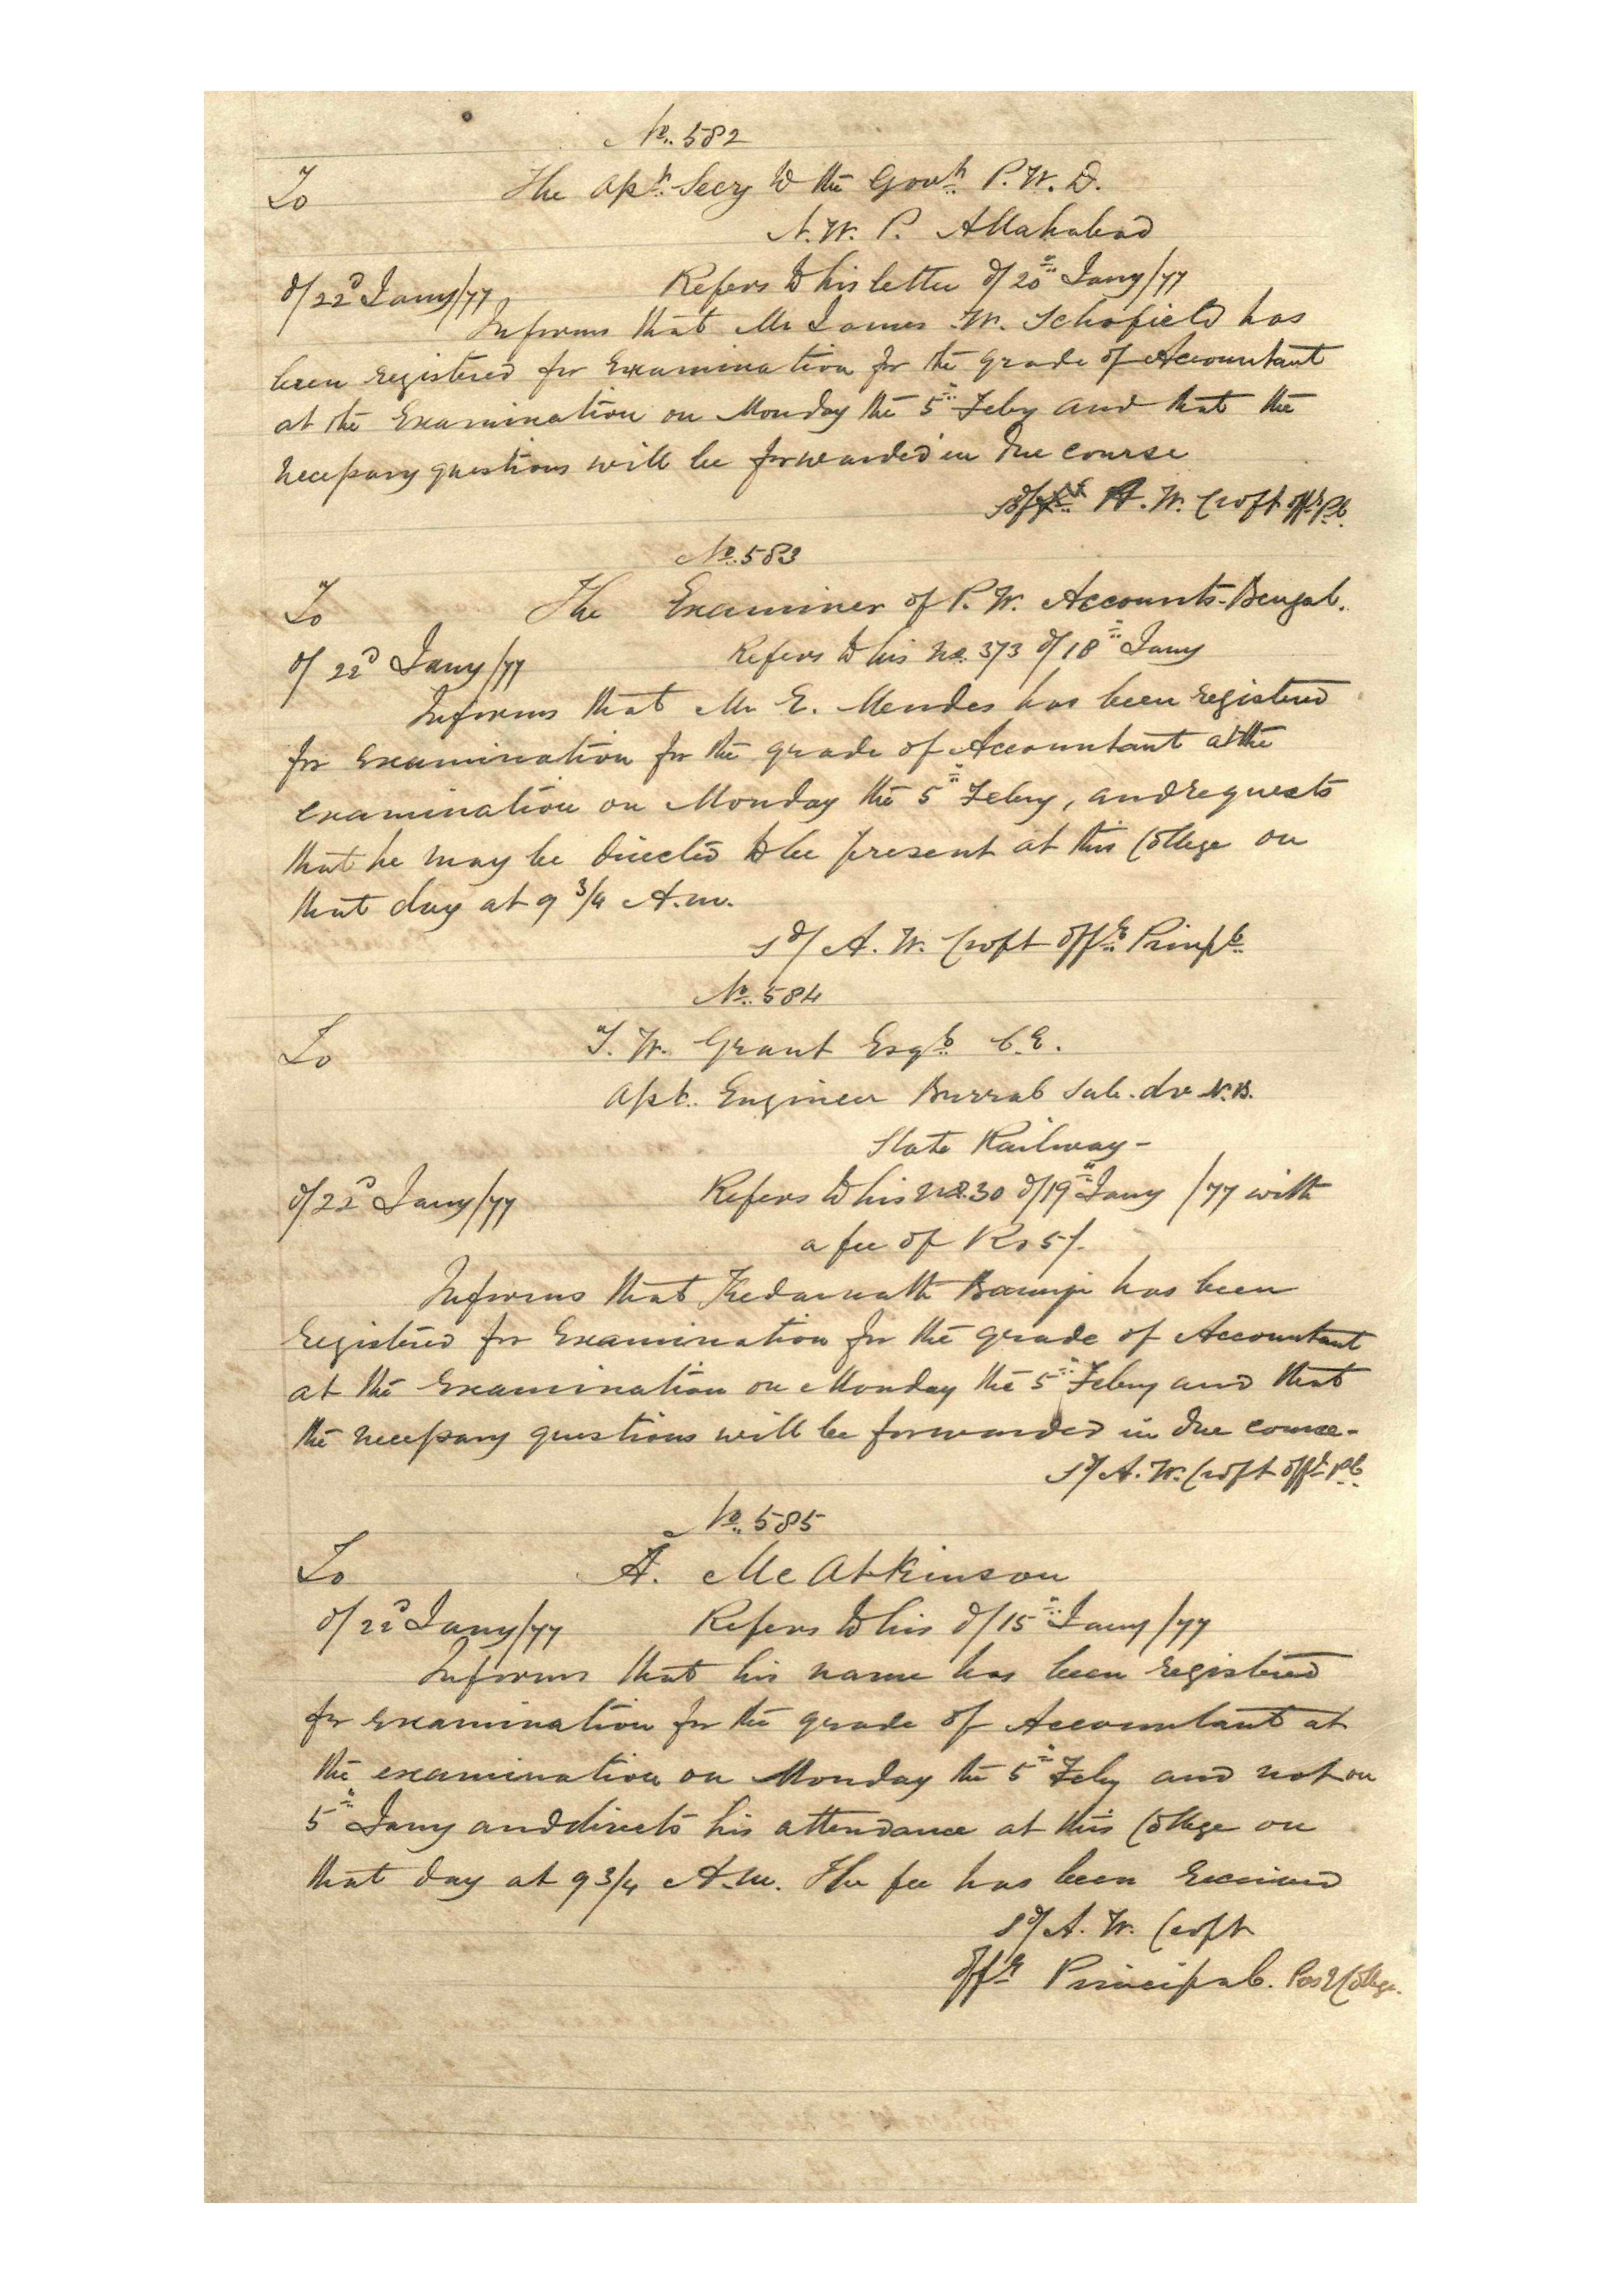 No. 582
To The Asst. Secy to the Govt. P. W. D.
N. W. P. Allahabad
d/22d Jany/77 Refers to his letter d/20th Jany/77
Informs that Mr James W. Schofield has
been registered for Examination for the grade of Accountant
at the Examination on Monday the 5th Feby and that the
necessary questions will be forwarded in due course
Sd/ A. W. Croft Offg. Pl.
No. 583
To The Examiner of P. W. Accounts-Bengal.
d/ 22d Jany/77 Refers to his No. 373 d/18th Jany
Informs that Mr E. Mendes has been registered
for examination for the grade of Accountant at the
examination on Monday the 5th Febry, and requests
that he may be directed to be present at this College on
that day at 9 3/4 A.m.
Sd/ A. W. Croft Offg. Prinpl.
No. 584
To T. W. Grant Esqr. C.E.
Asst. Engineer Sub. dv N.B.
State Railway-
d/22d Jany/77 Refers to his No. 30 d/19th Jany /77 with
a fee of Rs 5/.
Informs that Kedarnath Banerji has been
registered for Examination for the grade of Accountant
at the Examination on Monday the 5th Febry and that
the necessary questions will be forwarded in due course-
Sd/ A. W. Croft Offg. Pl.
No. 585
To A. Mc Atkinson
d/22d Jany/77 Refers to his d/15th Jany/77
Informs that his name has been registered
for examination for the grade of Accountant at
the examination on Monday the 5th Feby and not on
5th Jany and directs his attendance at this College on
that day at 9 3/4 A.m. The fee has been received
Sd/ A. W. Croft
Offg. Principal. College.